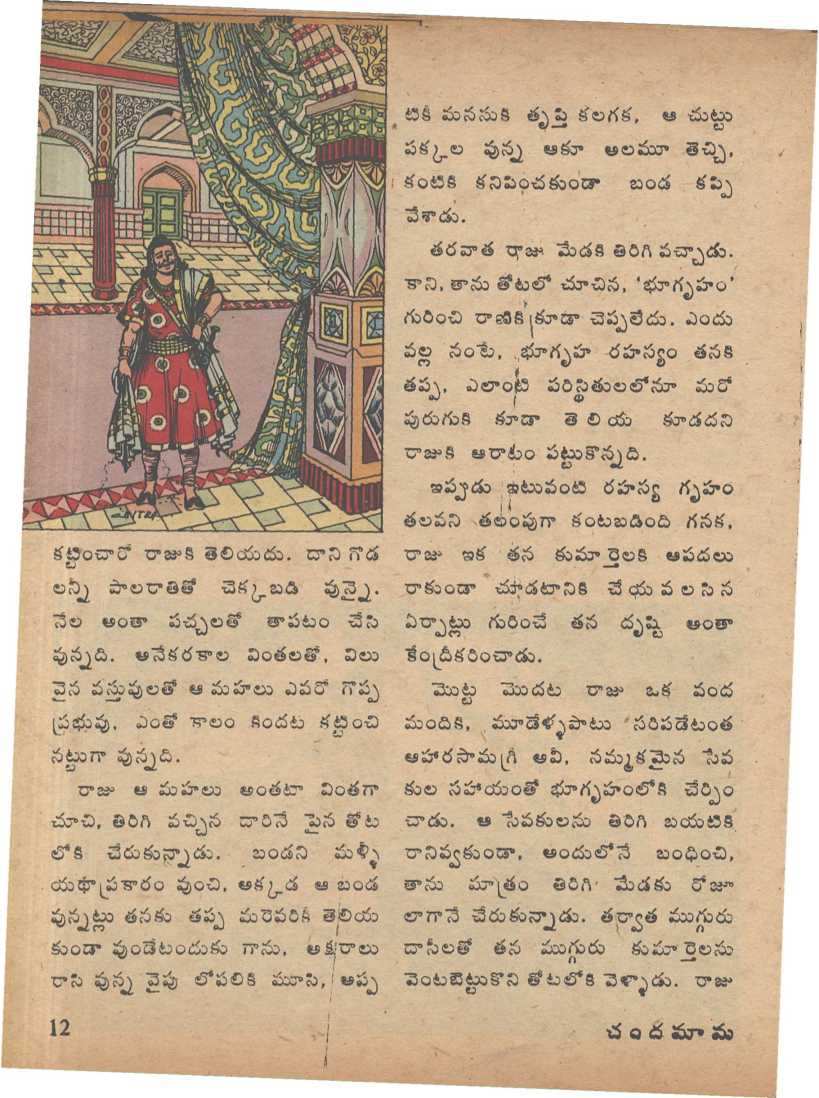 కట్టించారో రాజుకి తెలియదు. దాని గోడ
లన్నీ పాలరాతితో చెక్కబడి వున్నై.
నేల అంతా పచ్చలతో తాపటం చేసి
వున్నది. అనేకరకాల వింతలతో, విలు
వైన వస్తువులతో ఆ మహలు ఎవరో గొప్ప
ప్రభువు, ఎంతో కాలం కిందట కట్టించి
నట్టుగా వున్నది.
రాజు ఆ మహలు అంతటా వింతగా
చూచి, తిరిగి వచ్చిన దారినే పైన తోట
లోకి చేరుకున్నాడు. బండని మళ్ళీ
యథాప్రకారం వుంచి, అక్కడ ఆ బండ
వున్నట్లు తనకు తప్ప మరెవరికీ తెలియ
కుండా వుండేటందుకు గాను, అక్షరాలు
రాసి వున్న వైపు లోపలికి మూసి, అప్ప
టికీ మనసుకి తృప్తి కలగక, ఆ చుట్టు
పక్కల వున్న ఆకూ అలమూ తెచ్చి,
కంటికి కనిపించకుండా బండ కప్పి
వేశాడు.
తరవాత రాజు మేడకి తిరిగి వచ్చాడు.
కాని, తాను తోటలో చూచిన, 'భూగృహం'
గురించి రాణికి కూడా చెప్పలేదు. ఎందు
వల్ల నంటే, భూగృహ రహస్యం తనకి
తప్ప, ఎలాంటి పరిస్థితులలోనూ మరో
పురుగుకి కూడా తెలియ కూడదని
రాజుకి ఆరాటం పట్టుకొన్నది.
ఇప్పుడు ఇటువంటి రహస్య గృహం
తలవని తలంపుగా కంటబడింది గనక,
రాజు ఇక తన కుమార్తెలకి ఆపదలు
రాకుండా చూడటానికి చేయవలసిన
ఏర్పాట్లు గురించే తన దృష్టి అంతా
కేంద్రీకరించాడు.
మొట్ట మొదట రాజు ఒక వంద
మందికి, మూడేళ్ళపాటు సరిపడేటంత
ఆహారసామగ్రి అవీ, నమ్మకమైన సేవ
కుల సహాయంతో భూగృహంలోకి చేర్పిం
చాడు. ఆ సేవకులను తిరిగి బయటికి
రానివ్వకుండా, అందులోనే బంధించి,
తాను మాత్రం తిరిగి మేడకు రోజూ
లాగానే చేరుకున్నాడు. తర్వాత ముగ్గురు
దాసీలతో తన ముగ్గురు కుమార్తెలను
వెంటబెట్టుకొని తోటలోకి వెళ్ళాడు. రాజు
12
చందమామ